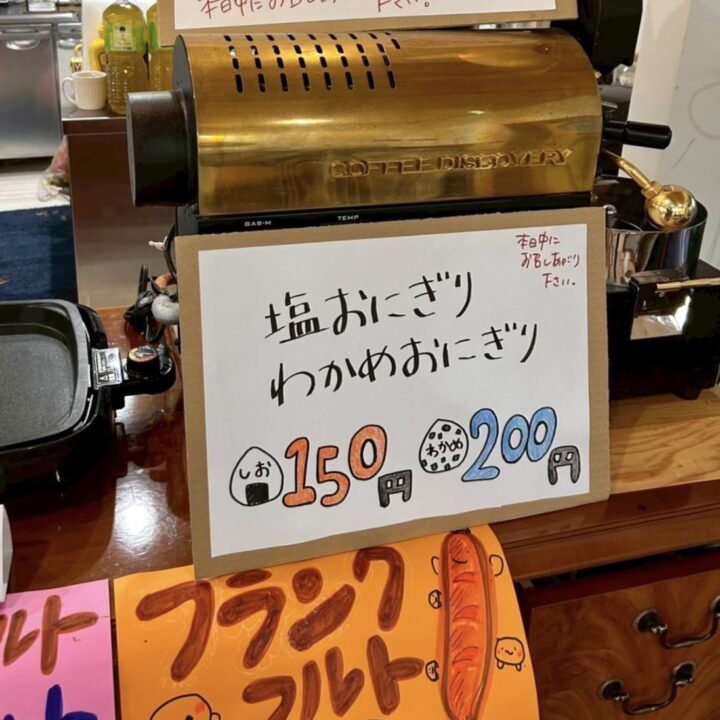 本日中にお召し上がり下さい。
COFFEE DISCOVERY
GAS-M TEMP
本日中に
お召しあがり
下さい。
塩おにぎり
わかめおにぎり
しお 150円 わかめ 200円
フランク
フルト
ルト